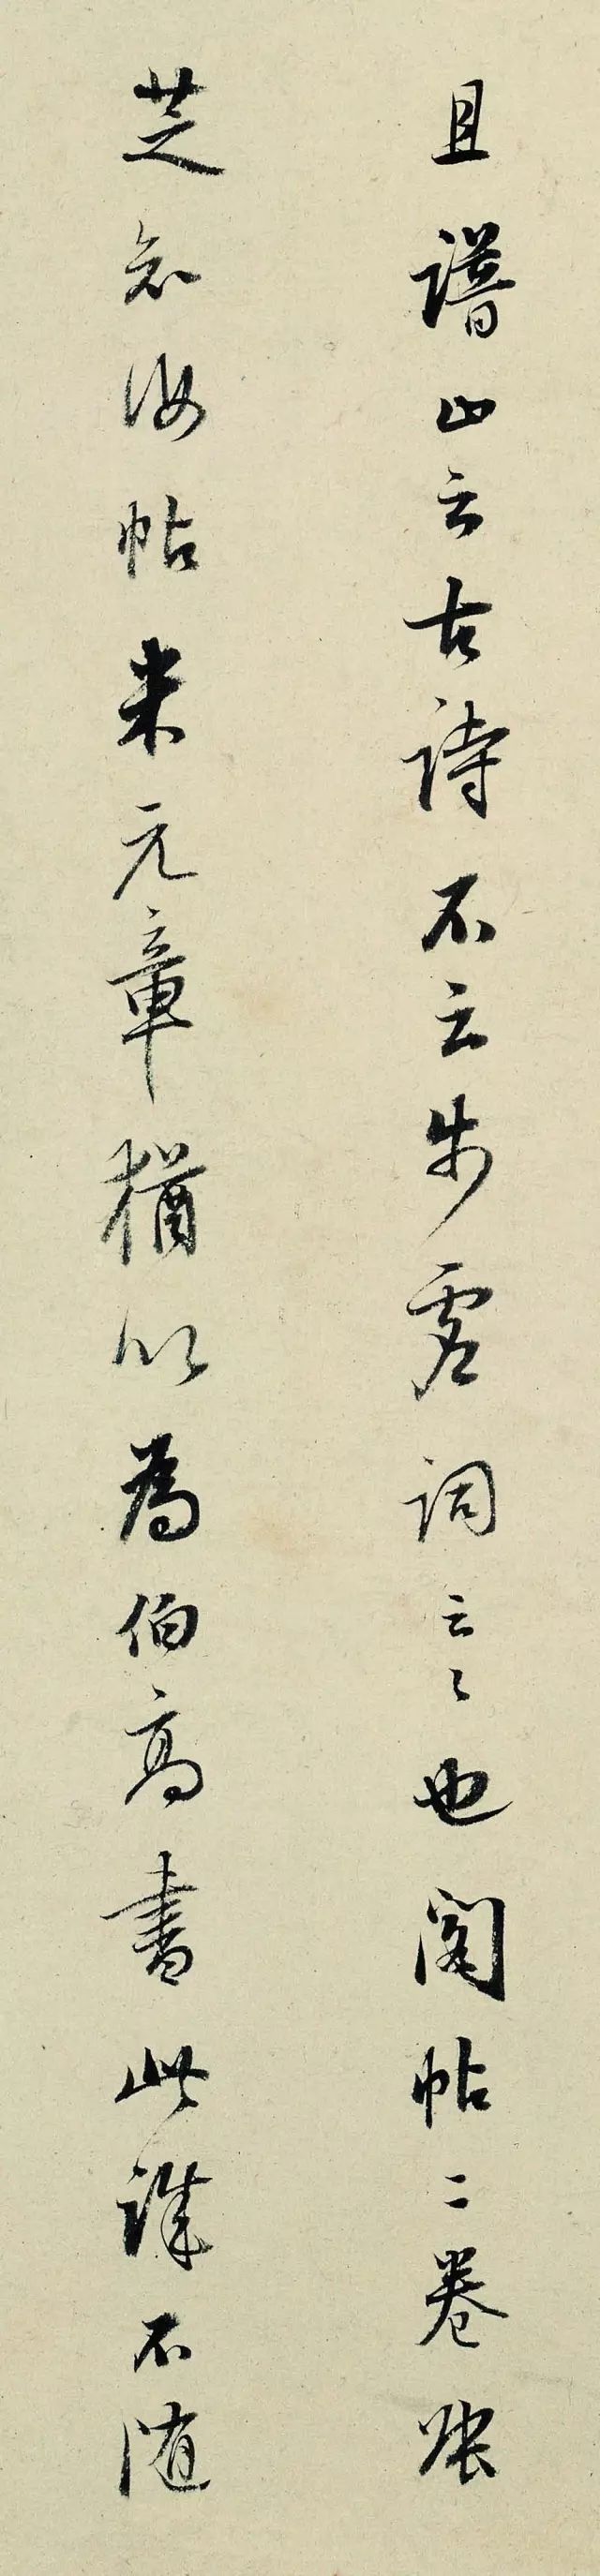 且譜止云古詩不云步虛詞云云也閣帖二卷張
芝知汝帖米元章猶以為伯高書此諆不随